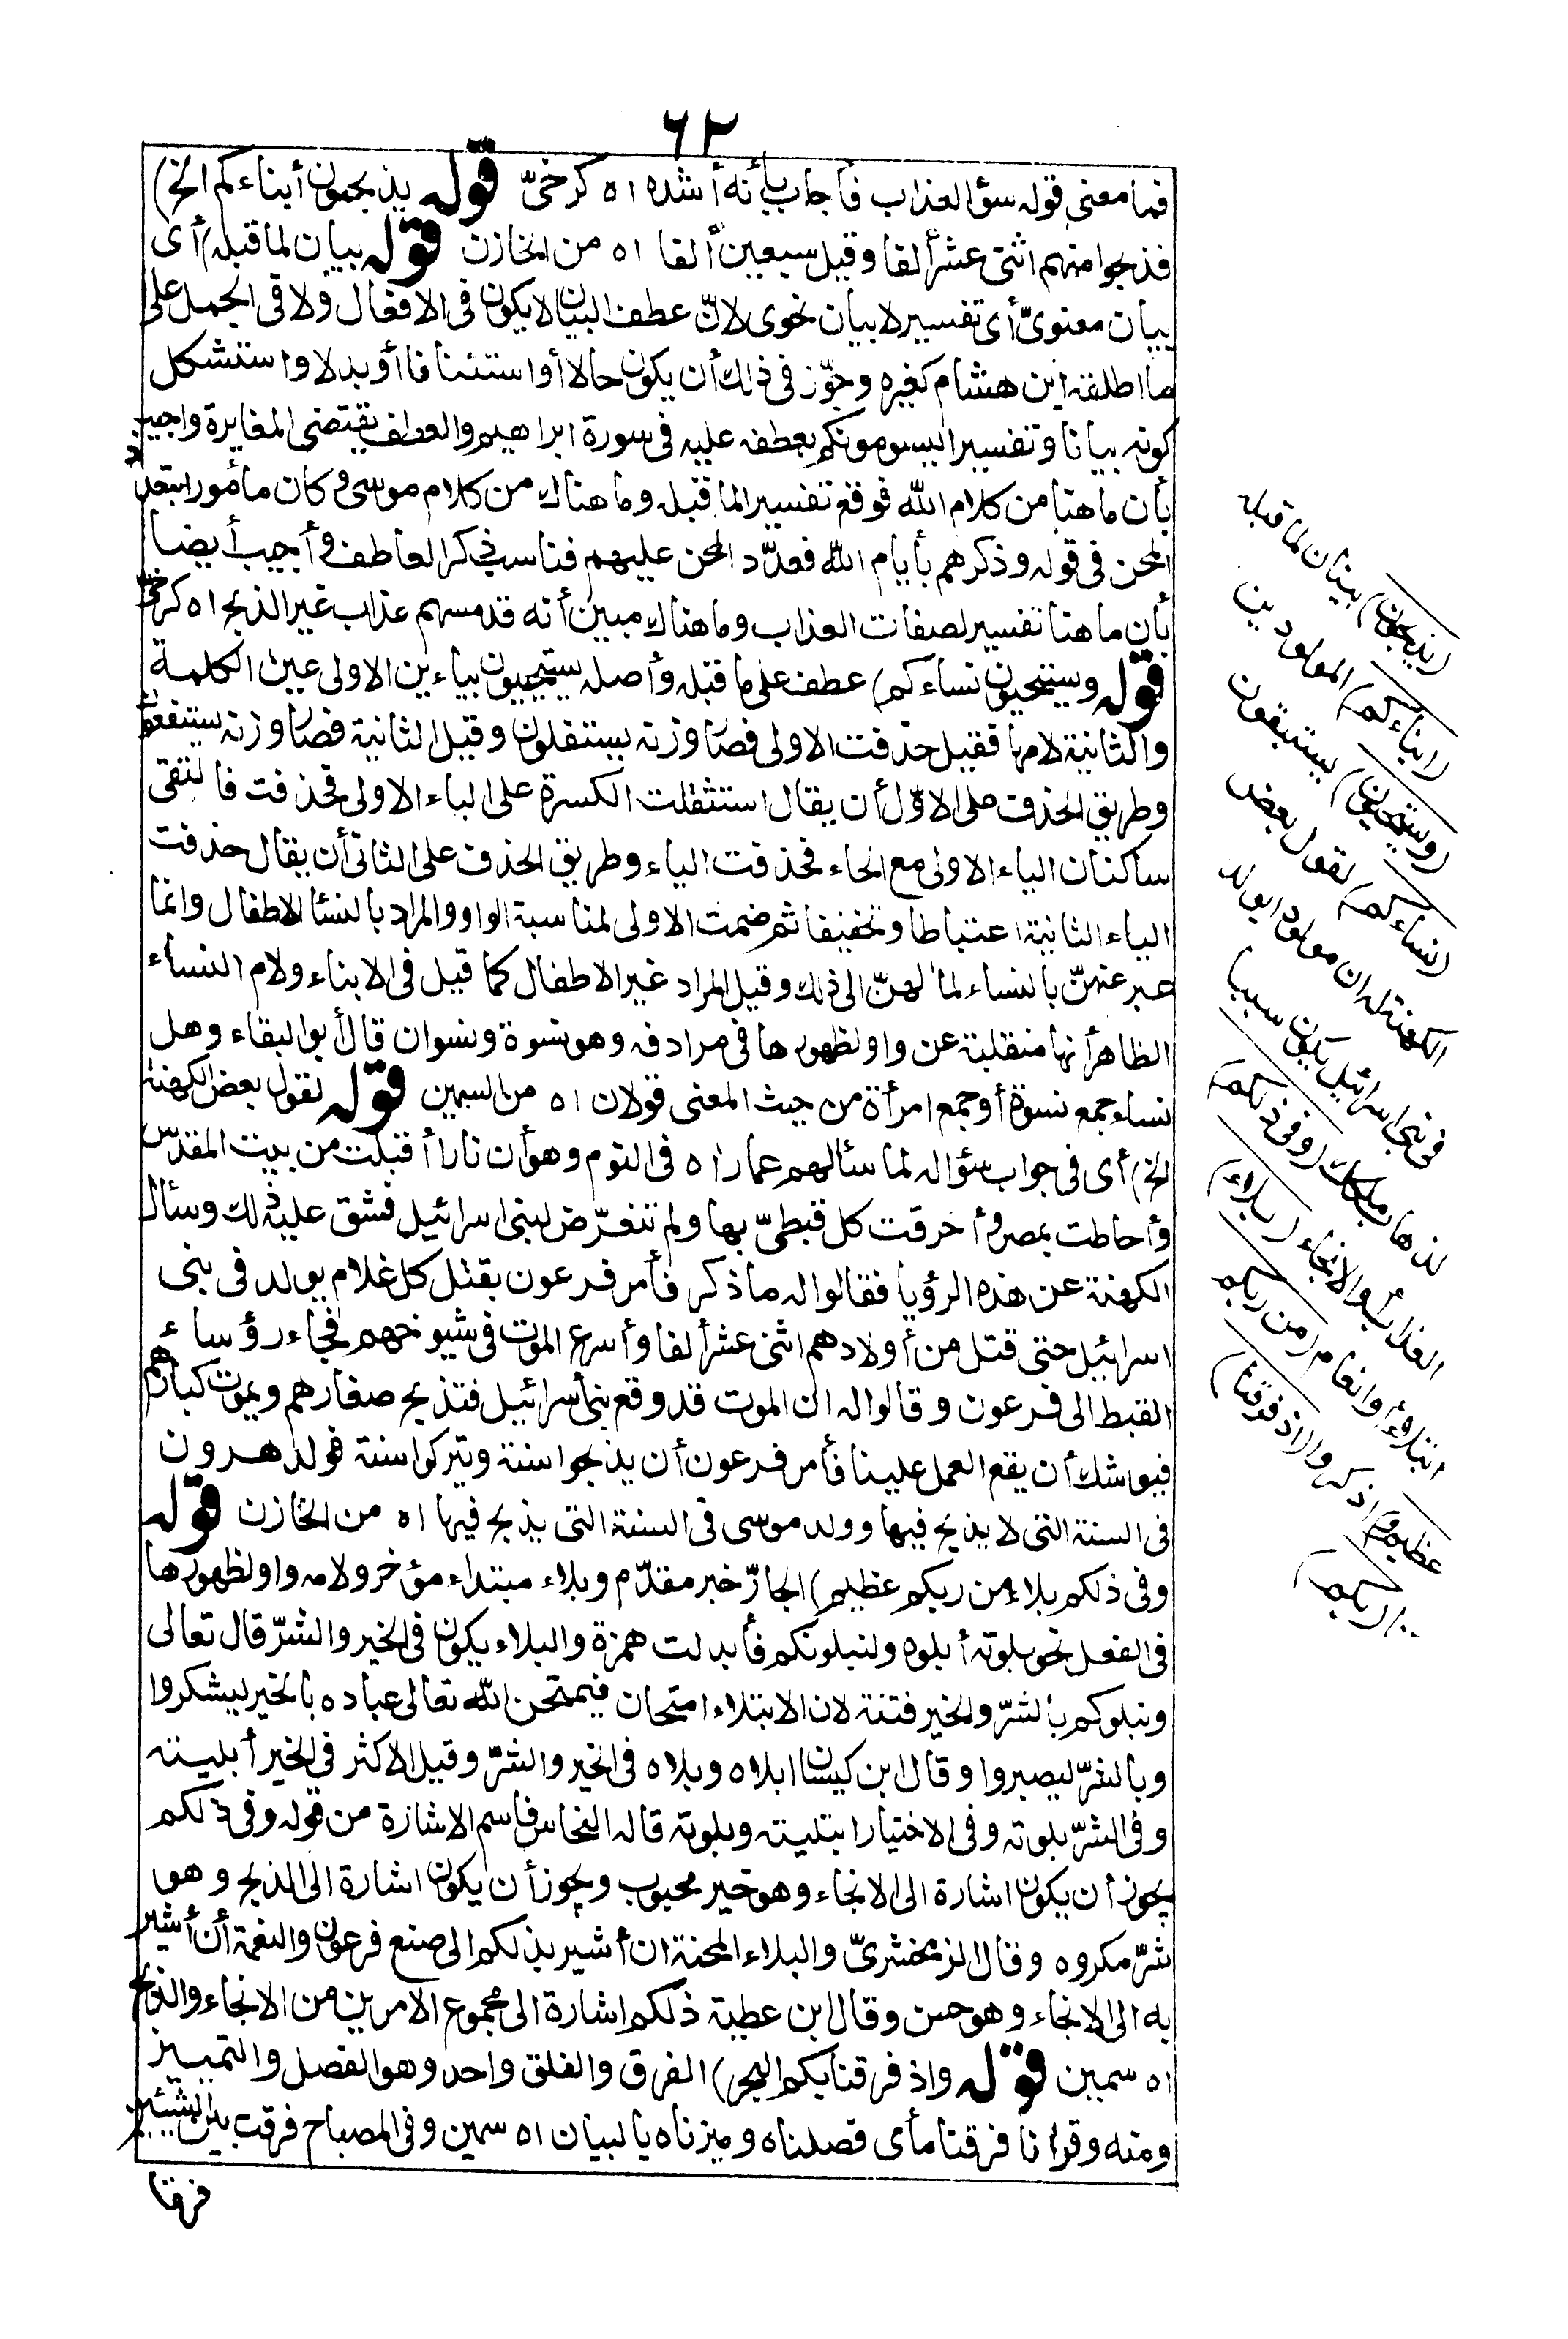 ٦٢
فما معنى قوله سؤ العذاب فأجاب بأنه أشده اه كرخىّ قوله يذبحون أبناءكم الخ)
فذبحوا منهم اثنى عشر ألفا وقيل سبعين ألفا اه من الخازن قوله بيان لما قبله) أى
بيان معنوىّ أى تفسير لا بيان نحوى لانّ عطف البيان لا يكون فى الافعال ولا فى الجمل على
ما اطلقه ابن هشام كغيره وجوّز فى ذلك أن يكون حالا أو استئنافا أو بدلا واستشكل
كونه بيانا وتفسيرا ليسومونكم بعطفه عليه فى سورة ابراهيم والعطف يقتضى المغايرة واجيب
بأن ما هنا من كلام الله فوقع تفسيرا لما قبله وما هناك من كلام موسى وكان مأمورا بتعداد
المحن فى قوله وذكرهم بأيام الله فعدّد المحن عليهم فناسب ذكر العاطف وأجيب أيضا
بأن ما هنا تفسير لصفات العذاب وما هناك مبين أنه قد مسهم عذاب غير الذبح اه كرخىّ
قوله ويستحيون نساءكم) عطف على ما قبله وأصله يستحييون بياءين الاولى عين الكلمة
والثانية لامها فقيل حذفت الاولى فصار وزنه يستفلون وقيل الثانية فصار وزنه يستفعون
وطريق الحذف على الاوّل أن يقال استثقلت الكسرة على الياء الاولى فحذفت فالتقى
ساكنان الياء الاولى مع الحاء فحذفت الياء وطريق الحذف على الثانى أن يقال حذفت
الياء الثانية اعتباطا وتخفيفا ثم ضمت الاولى لمناسبة الواو والمراد بالنسا الاطفال وانما
عبر عنهنّ بالنساء لمآلهنّ الى ذلك وقيل المراد غير الاطفال كما قيل فى الابناء ولام النساء
الظاهر أنها منقلبة عن واو لظهورها فى مرادفه وهو نسوة ونسوان قال أبو البقاء وهل
نساء جمع نسوة أو جمع امرأة من حيث المعنى قولان اه من السمين قوله لقول بعض الكهنة
الخ) أى فى جواب سؤاله لما سئالهم عما راه فى النوم وهو أن نارا أقبلت من بيت المقدس
وأحاطت بمصر وأحرقت كل قبطىّ بها ولم تتعرّض لبنى اسرائيل فشق عليه ذلك وسئال
الكهنة عن هذه الرؤيا فقالوا له ما ذكر فأمر فرعون بقتل كل غلام يولد فى بنى
اسرائيل حتى قتل من أولادهم اثنى عشر ألفا وأسرع الموت فى شيوخهم فجاء رؤساءهم
القبط الى فرعون وقالوا له ان الموت قد وقع ببنى أسرائيل فتذبح صغارهم ويموت كبارهم
فيوشك أن يقع العمل علينا فأمر فرعون أن يذبحوا سنة ويتركوا سنة فولد هرون
فى السنة التى لا يذبح فيها وولد موسى فى السنة التى يذبح فيها اه من الخازن قوله
وفى ذلكم بلاء من ربكم عظيم) الجارّ خبر مقدّم وبلاء مبتداء مؤخر ولامه واو لظهورها
فى الفعل نحو بلوته أبلوه ولنبلونكم فأبدلت همزة والبلاء يكون فى الخير والشرّ قال تعالى
ونبلوكم بالشرّ والخير فتنة لان الابتلاء امتحان فيمتحن الله تعالى عباده بالخير ليشكروا
وبالشرّ ليصبروا وقال ابن كيسان ابلاه وبلاه فى الخير والشرّ وقيل الاكثر فى الخير أبليته
وفى الشرّ بلوته وفى الاختيار ابتليته وبلوته قاله النحاس فاسم الاشارة من قوله وفى ذلكم
يجوز أن يكون اشارة الى الانجاء وهو خير محبوب ويجوز أن يكون اشارة الى الذبح وهو
شرّ مكروه وقال الزمخشرىّ والبلاء المحنة ان أشير بذلكم الى صنع فرعون والنعمة أن أشير
به الى الانجاء وهو حسن وقال ابن عطية ذلكم اشارة الى مجموع الامرين من الانجاء والذبح
اه سمين قوله واذ فرقنا بكم البحر) الفرق والفلق واحد وهو الفصل والتمييز
ومنه وقرانا فرقناه أى فصلناه وميزناه بالبيان اه سمين وفى المصباح فرقت بين الشيئين
فرقا
(يذبحون) بيان لما قبله
(ابناءكم) المولودين
(ويستحيون) يستبقون
(نساءكم) لقول بعض
الكهنة له ان مولودا يولد
فى بنى اسرائيل يكون سببا
لذهاب ملكك (وفى ذلكم)
العذاب أو الانجاء (بلاء)
ابتلاء أو انعام (من ربكم
عظيم و) اذكروا (اذ فرقنا)
(بكم)